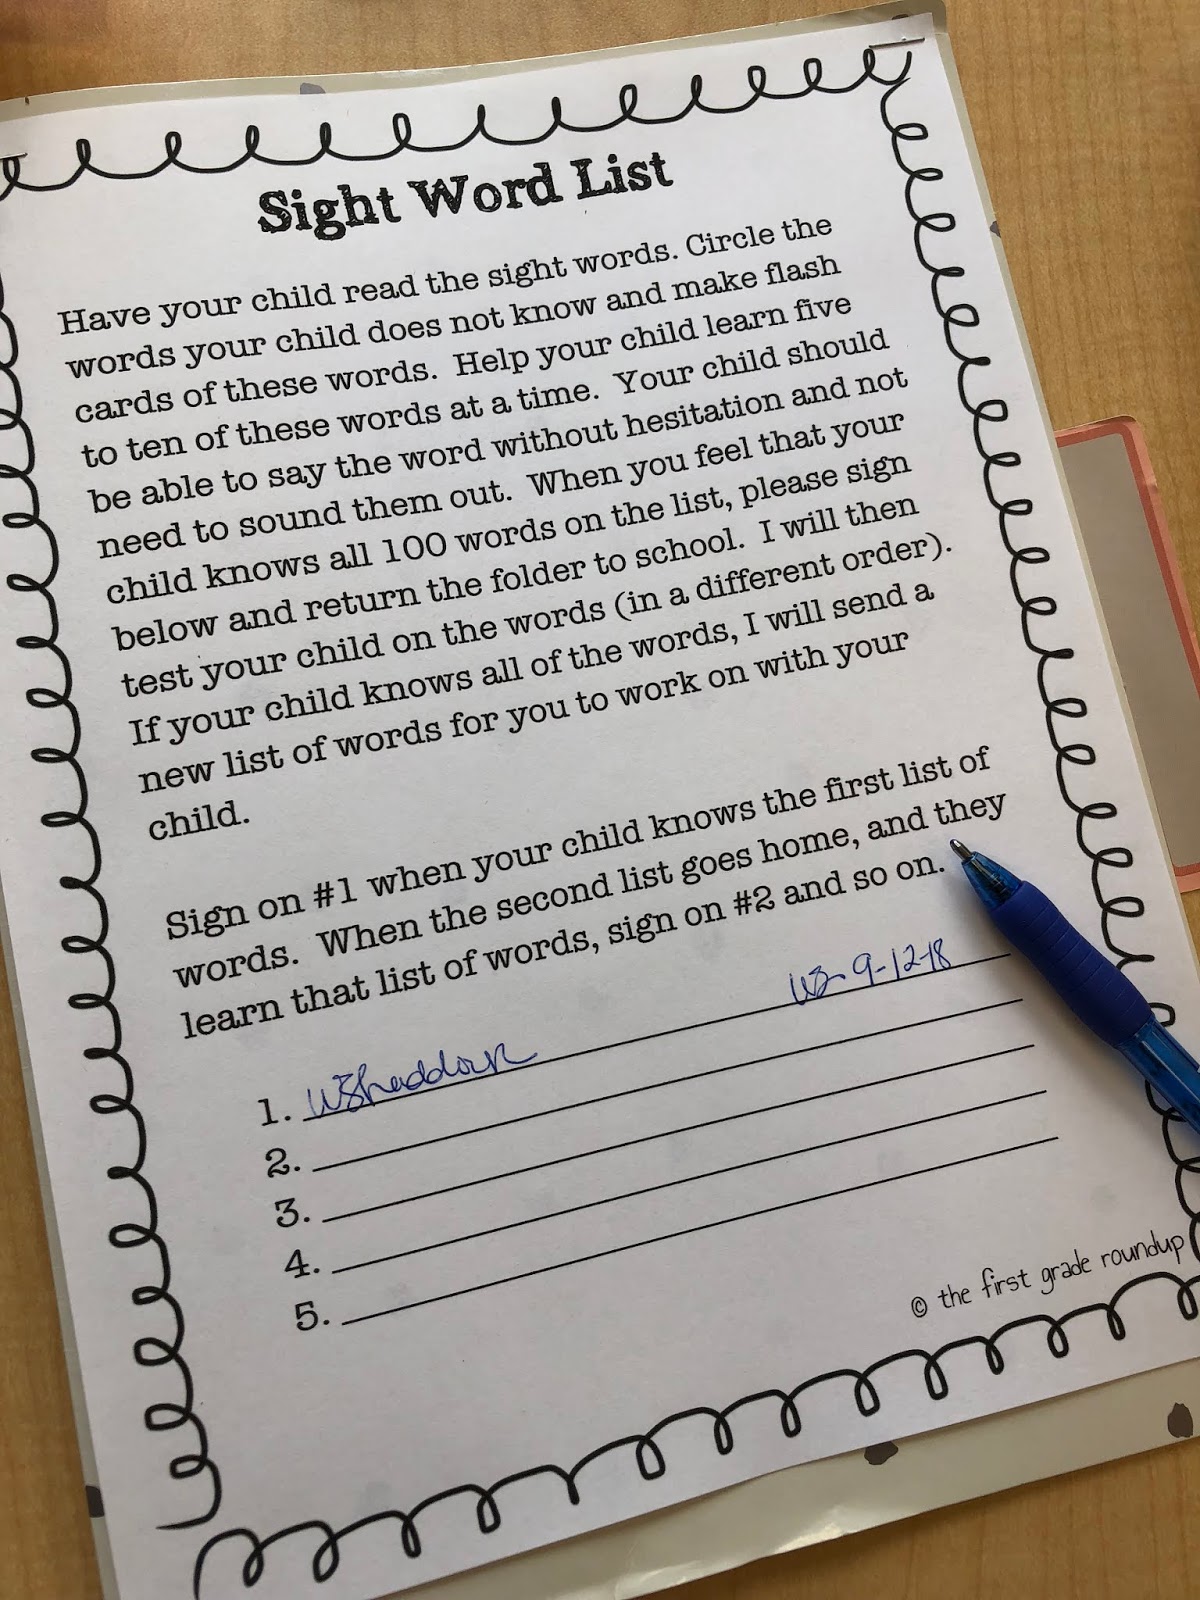 Sight Word List
Have your child read the sight words. Circle the
words your child does not know and make flash
cards of these words. Help your child learn five
to ten of these words at a time. Your child should
be able to say the word without hesitation and not
need to sound them out. When you feel that your
child knows all 100 words on the list, please sign
below and return the folder to school. I will then
test your child on the words (in a different order).
If your child knows all of the words, I will send a
new list of words for you to work on with your
child.
Sign on #1 when your child knows the first list of
words. When the second list goes home, and they
learn that list of words, sign on #2 and so on.
1. WShaddock WS 9-12-18
2.
3.
4.
5.
© the first grade roundup